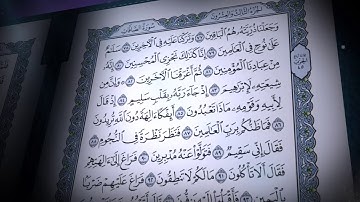 سُورَةُ الصَّافَّاتِ الجُزْءُ الثَّالِثُ وَالعِشْرُونَ
وَجَعَلْنَا ذُرِّيَّتَهُۥ هُمُ ٱلْبَاقِينَ ٧٧ وَتَرَكْنَا عَلَيْهِ فِي ٱلْأَخِرِينَ ٧٨ سَلَٰمٌ
عَلَىٰ نُوحٍ فِي ٱلْعَٰلَمِينَ ٧٩ إِنَّا كَذَٰلِكَ نَجْزِي ٱلْمُحْسِنِينَ ٨٠ إِنَّهُۥ
مِنْ عِبَادِنَا ٱلْمُؤْمِنِينَ ٨١ ثُمَّ أَغْرَقْنَا ٱلْأَخَرِينَ ٨٢ ۞ وَإِنَّ مِن
شِيعَتِهِۦ لَإِبْرَٰهِيمَ ٨٣ إِذْ جَآءَ رَبَّهُۥ بِقَلْبٍ سَلِيمٍ ٨٤ إِذْ قَالَ
لِأَبِيهِ وَقَوْمِهِۦ مَاذَا تَعْبُدُونَ ٨٥ أَئِفْكًا ءَالِهَةً دُونَ ٱللَّهِ تُرِيدُونَ
٨٦ فَمَا ظَنُّكُم بِرَبِّ ٱلْعَٰلَمِينَ ٨٧ فَنَظَرَ نَظْرَةً فِي ٱلنُّجُومِ ٨٨
فَقَالَ إِنِّي سَقِيمٌ ٨٩ فَتَوَلَّوْا۟ عَنْهُ مُدْبِرِينَ ٩٠ فَرَاغَ إِلَىٰٓ ءَالِهَتِهِمْ
فَقَالَ أَلَا تَأْكُلُونَ ٩١ مَا لَكُمْ لَا تَنطِقُونَ ٩٢ فَرَاغَ عَلَيْهِمْ ضَرْبًۢا
بِٱلْيَمِينِ ٩٣ فَأَقْبَلُوٓا۟